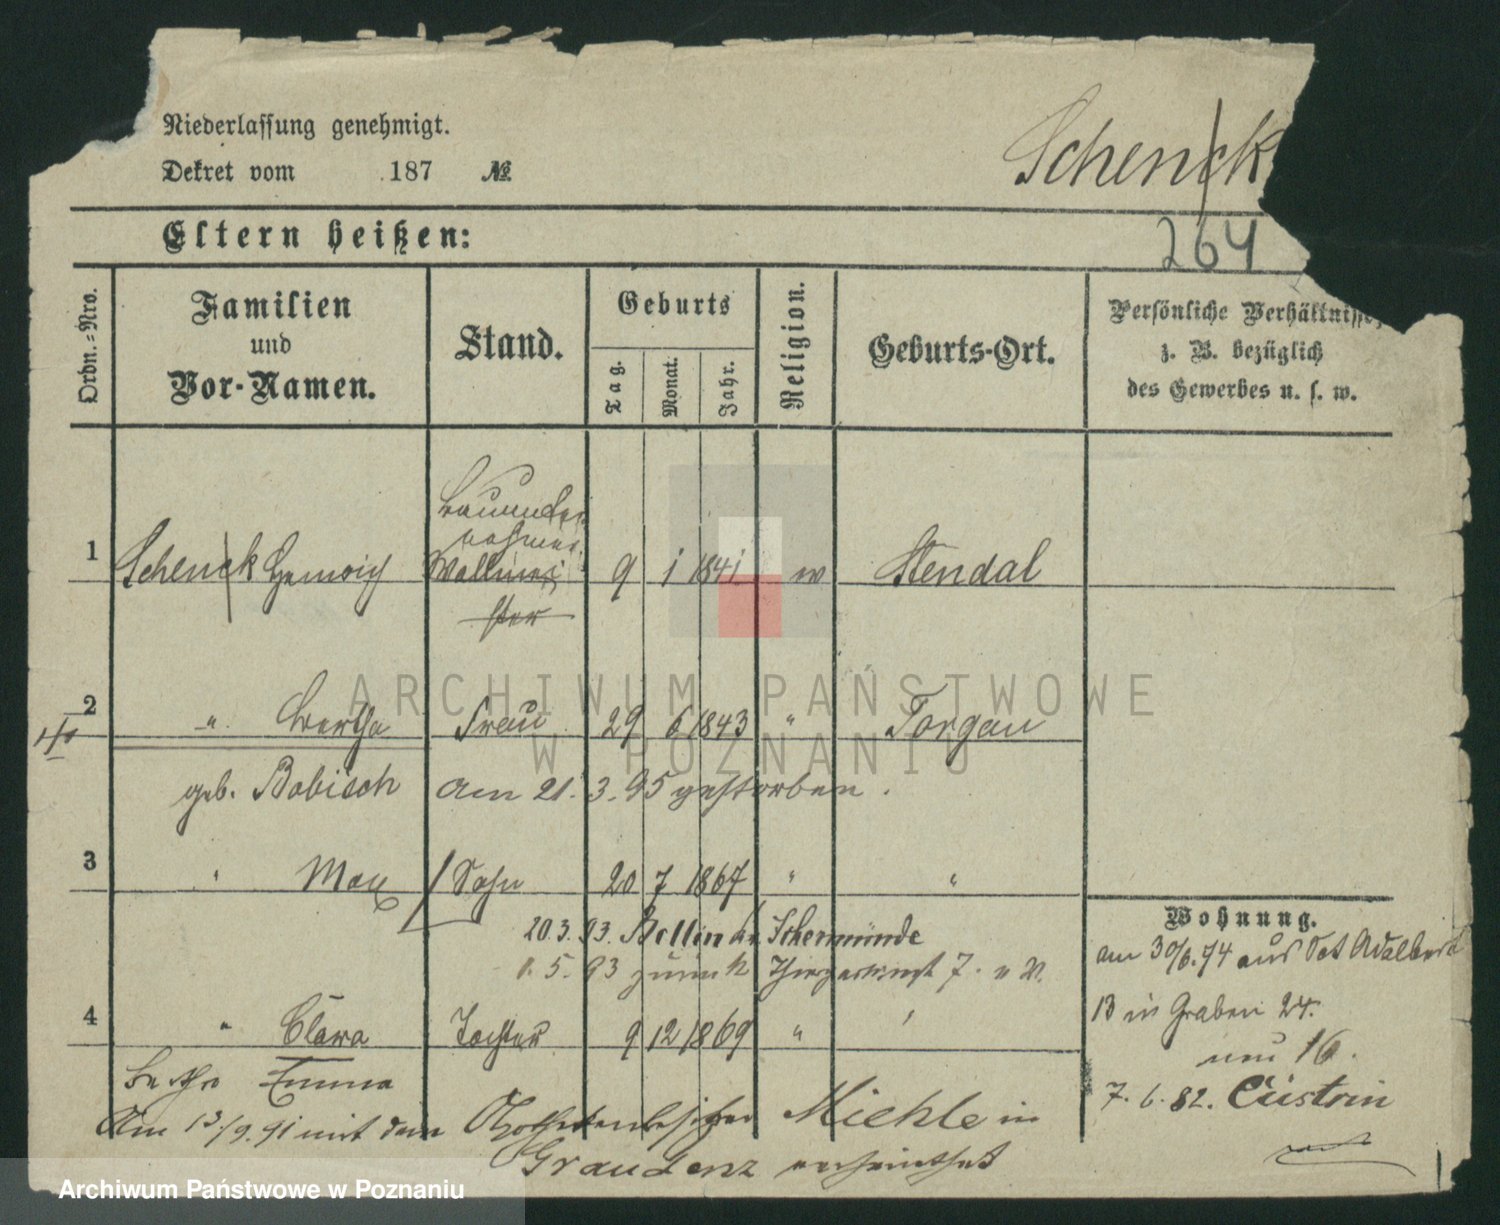 Niederlassung genehmigt.
Dekret vom 187 №
Schenck
264
Eltern heißen:
Ordn.-Nro.
Familien
und
Vor-Namen.
Stand.
Geburts
Tag.
Monat.
Jahr.
Religion.
Geburts-Ort.
Persönliche Verhältnisse,
z. B. bezüglich
des Gewerbes u. s. w.
Bauunder
nehmer
1 Schenck Heinrich Wallmei 9 1 1841 ev Stendal
ster
2 " Bertha Frau 29 6 1843 " Torgau
geb. Bobisch am 21. 3. 95 gestorben.
3 " Max Sohn 20 7 1867 " "
20. 3. 93. Bellin Ückermünde
1. 5. 93 zurück 7.
4 " Clara Tochter 9 12 1869 "
Bertha Emma
Am 13/9. 91 mit dem Apothekenbesitzer Miehle in
Graudenz verheirathet
Wohnung.
am 30/6. 74 aus Sct Adalbert
13 in Graben 24.
neu 16.
7. 6. 82. Cüstrin
ARCHIWUM PAŃSTWOWE
W POZNANIU
Archiwum Państwowe w Poznaniu